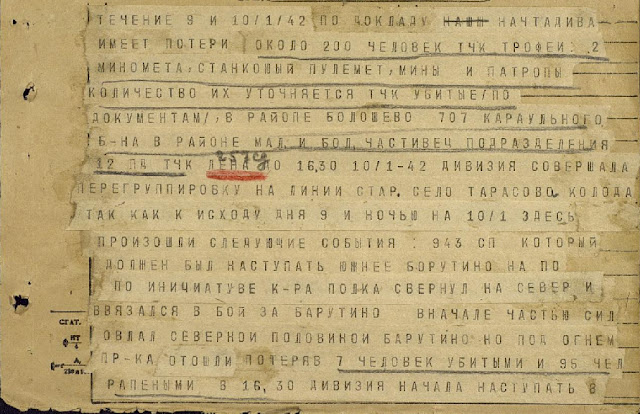 ТЕЧЕНИЕ 9 И 10/1/42 ПО ДОКЛАДУ НАШИ НАЧТАДИВА
ИМЕЕТ ПОТЕРИ ОКОЛО 200 ЧЕЛОВЕК ТЧК ТРОФЕИ : 2
МИНОМЕТА, СТАНКОВЫЙ ПУЛЕМЕТ, МИНЫ И ПАТРОПЫ
КОЛИЧЕСТВО ИХ УТОЧНЯЕТСЯ ТЧК УБИТЫЕ/ПО
ДОКУМЕНТАМ/, В РАЙОПЕ БОЛОШЕВО 707 КАРАУЛЬНОГО
Б-НА В РАЙОНЕ МАЛ. И БОЛ. ЧАСТИВЕЦ ПОДРАЗДЕЛЕНИЯ
12 ПД ТЧК ДО 16,30 10/1-42 ДИВИЗИЯ СОВЕРШАЛА
ПЕРЕГРУППИРОВКУ НА ЛИНИИ СТАР. СЕЛО ТАРАСОВО КОЛОДА
ТАК КАК К ИСХОДУ ДНЯ 9 И НОЧЬЮ НА 10/1 ЗДЕСЬ
ПРОИЗОШЛИ СЛЕДУЮЩИЕ СОБЫТИЯ : 943 СП КОТОРЫЙ
ДОЛЖЕН БЫЛ НАСТУПАТЬ ЮЖНЕЕ БОРУТИНО НА ПО
ПО ИНИЦИАТУВЕ К-РА ПОЛКА СВЕРНУЛ НА СЕВЕР И
ВВЯЗАЛСЯ В БОЙ ЗА БАРУТИНО ВНАЧАЛЕ ЧАСТЬЮ СИЛ
ОВЛАЛ СЕВЕРНОЙ ПОЛОВИНОЙ БАРУТИНО НО ПОД ОГНЕМ
ПР-КА, ОТОШЛИ ПОТЕРЯВ 7 ЧЕЛОВЕК УБИТЫМИ И 95 ЧЕЛ
РАПЕНЫМИ В 16,30 ДИВИЗИЯ НАЧАЛА НАСТУПАТЬ В
СГАТ.